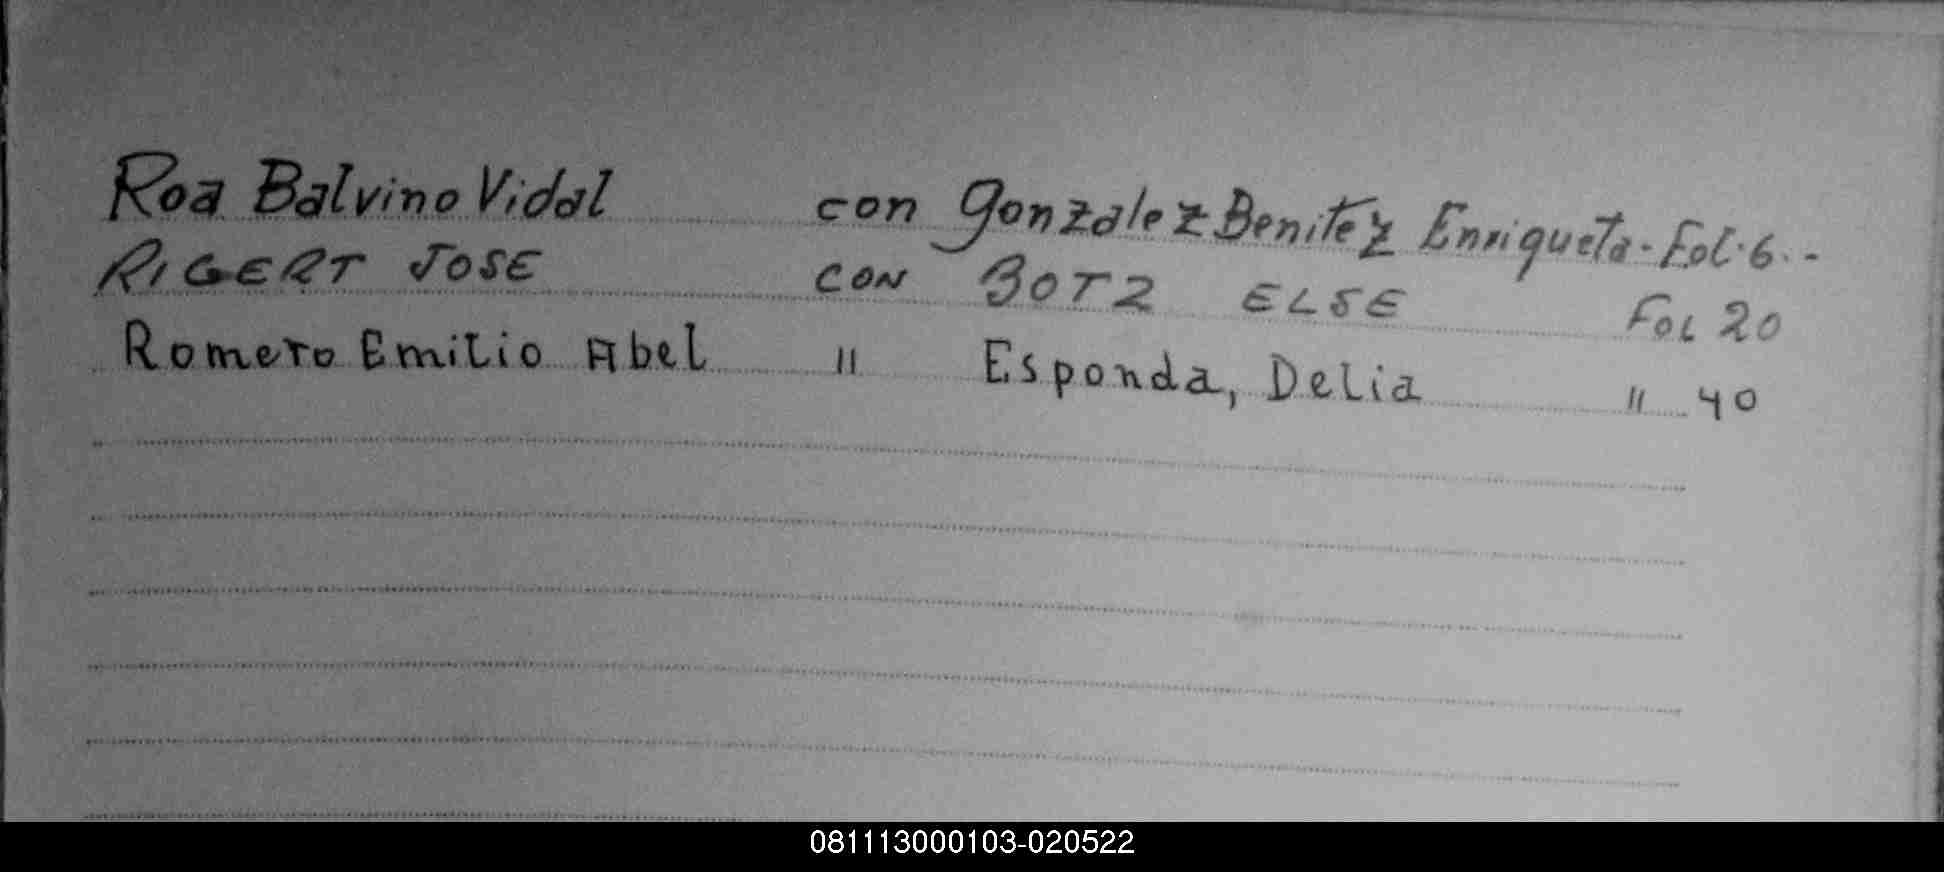 Roa Balvino Vidal con Gonzalez Benitez Enriqueta - Fol. 6. -
RIGERT JOSE CON BOTZ ELSE FOL 20
Romero Emilio Abel " Esponda, Delia " 40
081113000103-020522